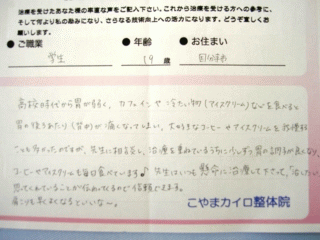 治療を受けたあなた様の率直な声をご記入下さい。これから治療を受ける方への参考に、
そして何より私の励みになり、さらなる技術向上への活力になります。どうぞ宜しくお
願いします。
●ご職業 ●年齢 ●お住まい
学生 19歳 国分寺市
高校時代から胃が弱く、カフェインや冷たい物(アイスクリーム)などを食べると
胃の後ろあたり(背中)が痛くなってしまい、大好きなコーヒーやアイスクリームを
ことも多かったのですが、先生に相談し、治療を重ねているうちに少しずつ胃の調子が良くなり、
コーヒーやアイスクリームも毎日食べています♪先生はいつも懸命に治療して下さって、「治したい」と
思ってくれていることが伝わってくるので信頼できます。
肩こりも早くよくなるといいな〜。
こやまカイロ整体院